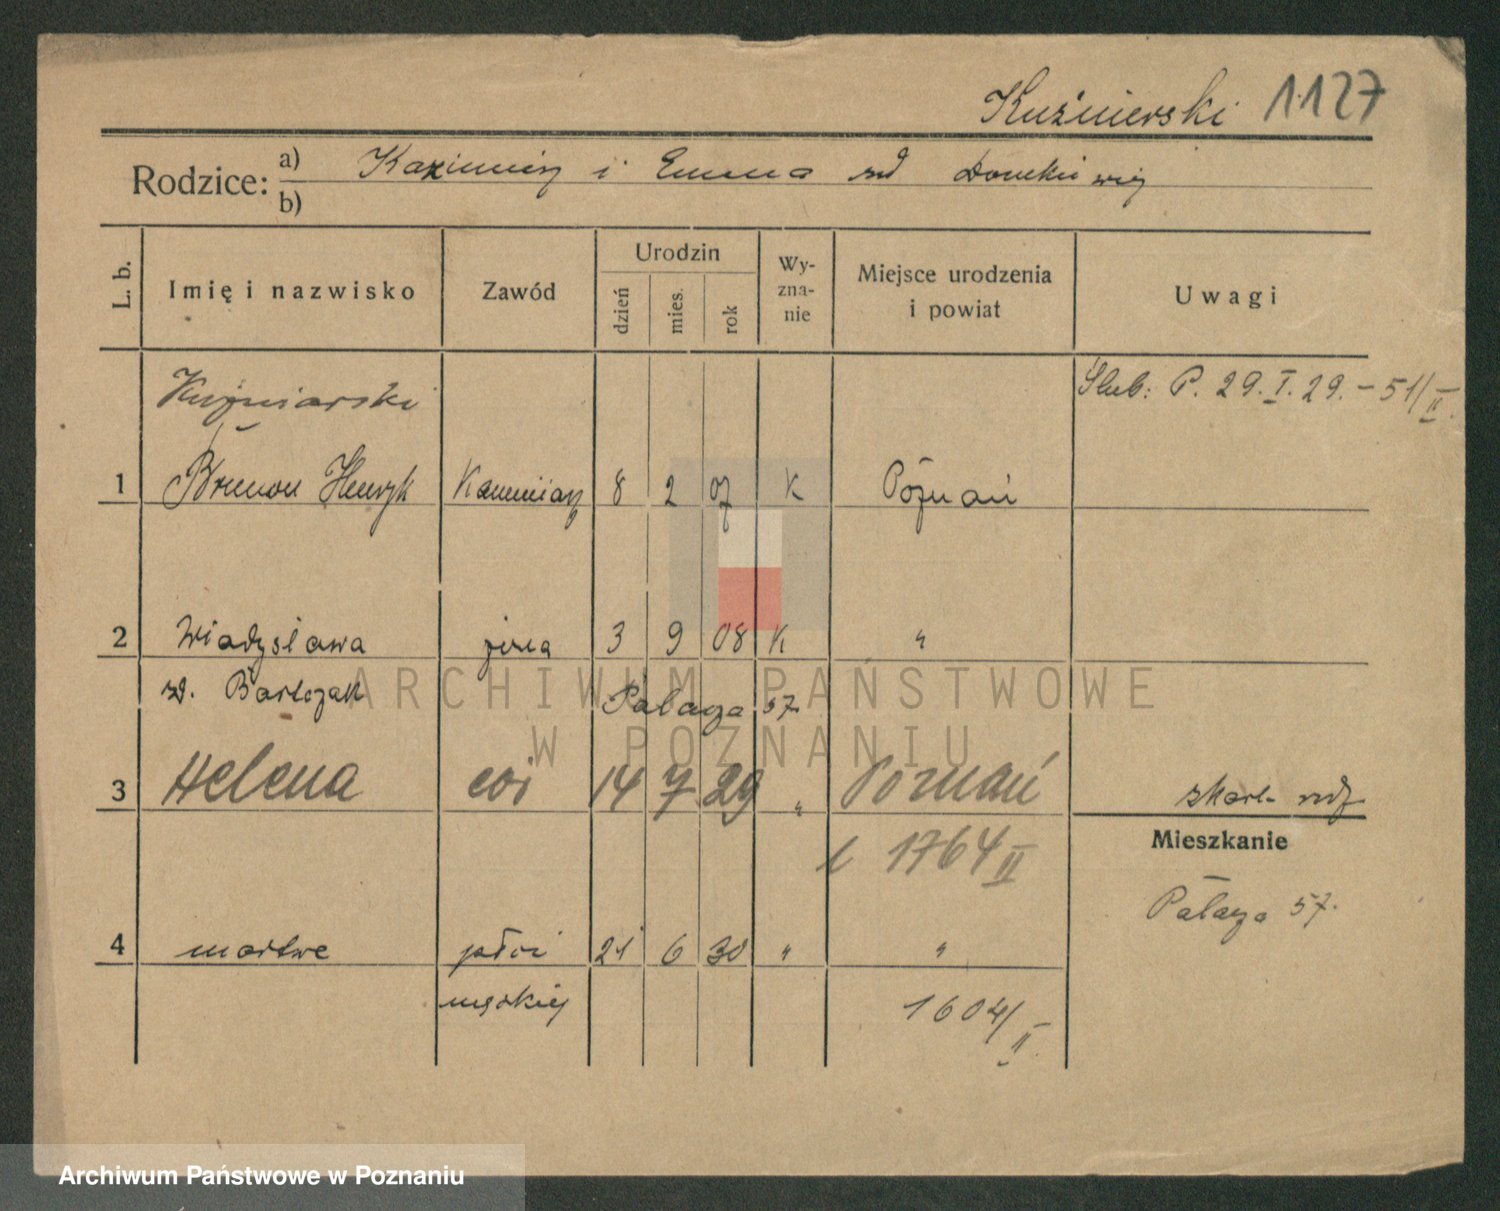 Kuźnierski 1127
Rodzice: a) Kazimierz i Emma zd
b)
L. b.
Imię i nazwisko
Zawód
Urodzin
dzień
mies.
rok
Wy-
zna-
nie
Miejsce urodzenia
i powiat
Uwagi
Kuźniarski
Ślub: P. 29. I. 29. – 51/II.
1 Brunon Henryk Kamieniarz 8 2 07 K Poznań
2 Władysława żona 3 9 08 K "
zd. Bartczak Pałacza 57
3 Helena 14 7 29 " Poznań
Mieszkanie
1764 II
Pałacza 57.
4 martwe płci 21 6 30 " "
męskiej 1604/II.
ARCHIWUM PAŃSTWOWE
W POZNANIU
Archiwum Państwowe w Poznaniu